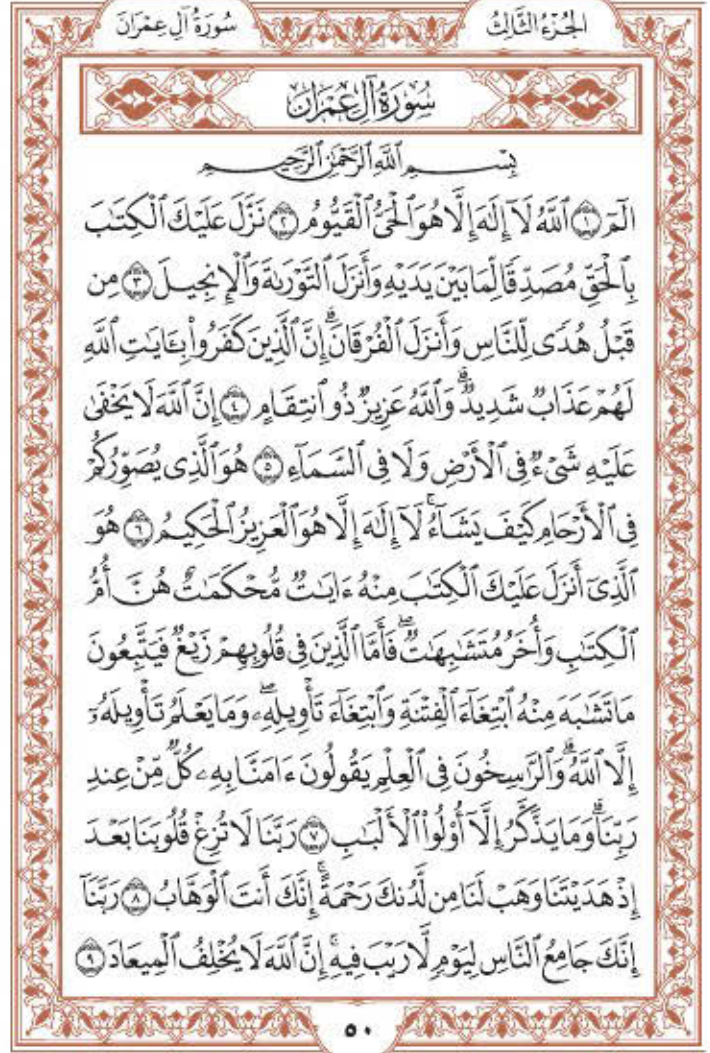 الجُزْءُ الثَّالِثُ سُورَةُ آلِ عِمْرَانَ
سُورَةُ آلِ عِمْرَانَ
بِسْمِ ٱللَّهِ ٱلرَّحْمَٰنِ ٱلرَّحِيمِ
الٓمٓ ١ ٱللَّهُ لَآ إِلَٰهَ إِلَّا هُوَ ٱلْحَىُّ ٱلْقَيُّومُ ٢ نَزَّلَ عَلَيْكَ ٱلْكِتَٰبَ
بِٱلْحَقِّ مُصَدِّقًا لِّمَا بَيْنَ يَدَيْهِ وَأَنزَلَ ٱلتَّوْرَىٰةَ وَٱلْإِنجِيلَ ٣ مِن
قَبْلُ هُدًى لِّلنَّاسِ وَأَنزَلَ ٱلْفُرْقَانَۗ إِنَّ ٱلَّذِينَ كَفَرُوا۟ بِـَٔايَٰتِ ٱللَّهِ
لَهُمْ عَذَابٌ شَدِيدٌۗ وَٱللَّهُ عَزِيزٌ ذُو ٱنتِقَامٍ ٤ إِنَّ ٱللَّهَ لَا يَخْفَىٰ
عَلَيْهِ شَىْءٌ فِى ٱلْأَرْضِ وَلَا فِى ٱلسَّمَآءِ ٥ هُوَ ٱلَّذِى يُصَوِّرُكُمْ
فِى ٱلْأَرْحَامِ كَيْفَ يَشَآءُۚ لَآ إِلَٰهَ إِلَّا هُوَ ٱلْعَزِيزُ ٱلْحَكِيمُ ٦ هُوَ
ٱلَّذِىٓ أَنزَلَ عَلَيْكَ ٱلْكِتَٰبَ مِنْهُ ءَايَٰتٌ مُّحْكَمَٰتٌ هُنَّ أُمُّ
ٱلْكِتَٰبِ وَأُخَرُ مُتَشَٰبِهَٰتٌۖ فَأَمَّا ٱلَّذِينَ فِى قُلُوبِهِمْ زَيْغٌ فَيَتَّبِعُونَ
مَا تَشَٰبَهَ مِنْهُ ٱبْتِغَآءَ ٱلْفِتْنَةِ وَٱبْتِغَآءَ تَأْوِيلِهِۦۖ وَمَا يَعْلَمُ تَأْوِيلَهُۥٓ
إِلَّا ٱللَّهُۗ وَٱلرَّٰسِخُونَ فِى ٱلْعِلْمِ يَقُولُونَ ءَامَنَّا بِهِۦ كُلٌّ مِّنْ عِندِ
رَبِّنَاۗ وَمَا يَذَّكَّرُ إِلَّآ أُو۟لُوا۟ ٱلْأَلْبَٰبِ ٧ رَبَّنَا لَا تُزِغْ قُلُوبَنَا بَعْدَ
إِذْ هَدَيْتَنَا وَهَبْ لَنَا مِن لَّدُنكَ رَحْمَةًۚ إِنَّكَ أَنتَ ٱلْوَهَّابُ ٨ رَبَّنَآ
إِنَّكَ جَامِعُ ٱلنَّاسِ لِيَوْمٍ لَّا رَيْبَ فِيهِۚ إِنَّ ٱللَّهَ لَا يُخْلِفُ ٱلْمِيعَادَ ٩
٥٠